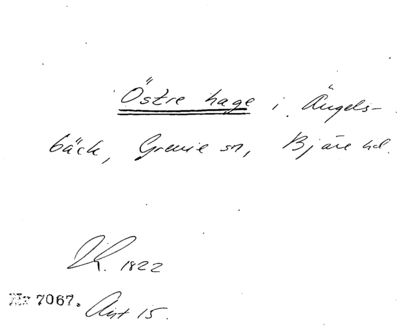 Östre hage i Ängels-
bäck, Grevie sn, Bjäre hd.
1822
Nr 7067. Akt 15.